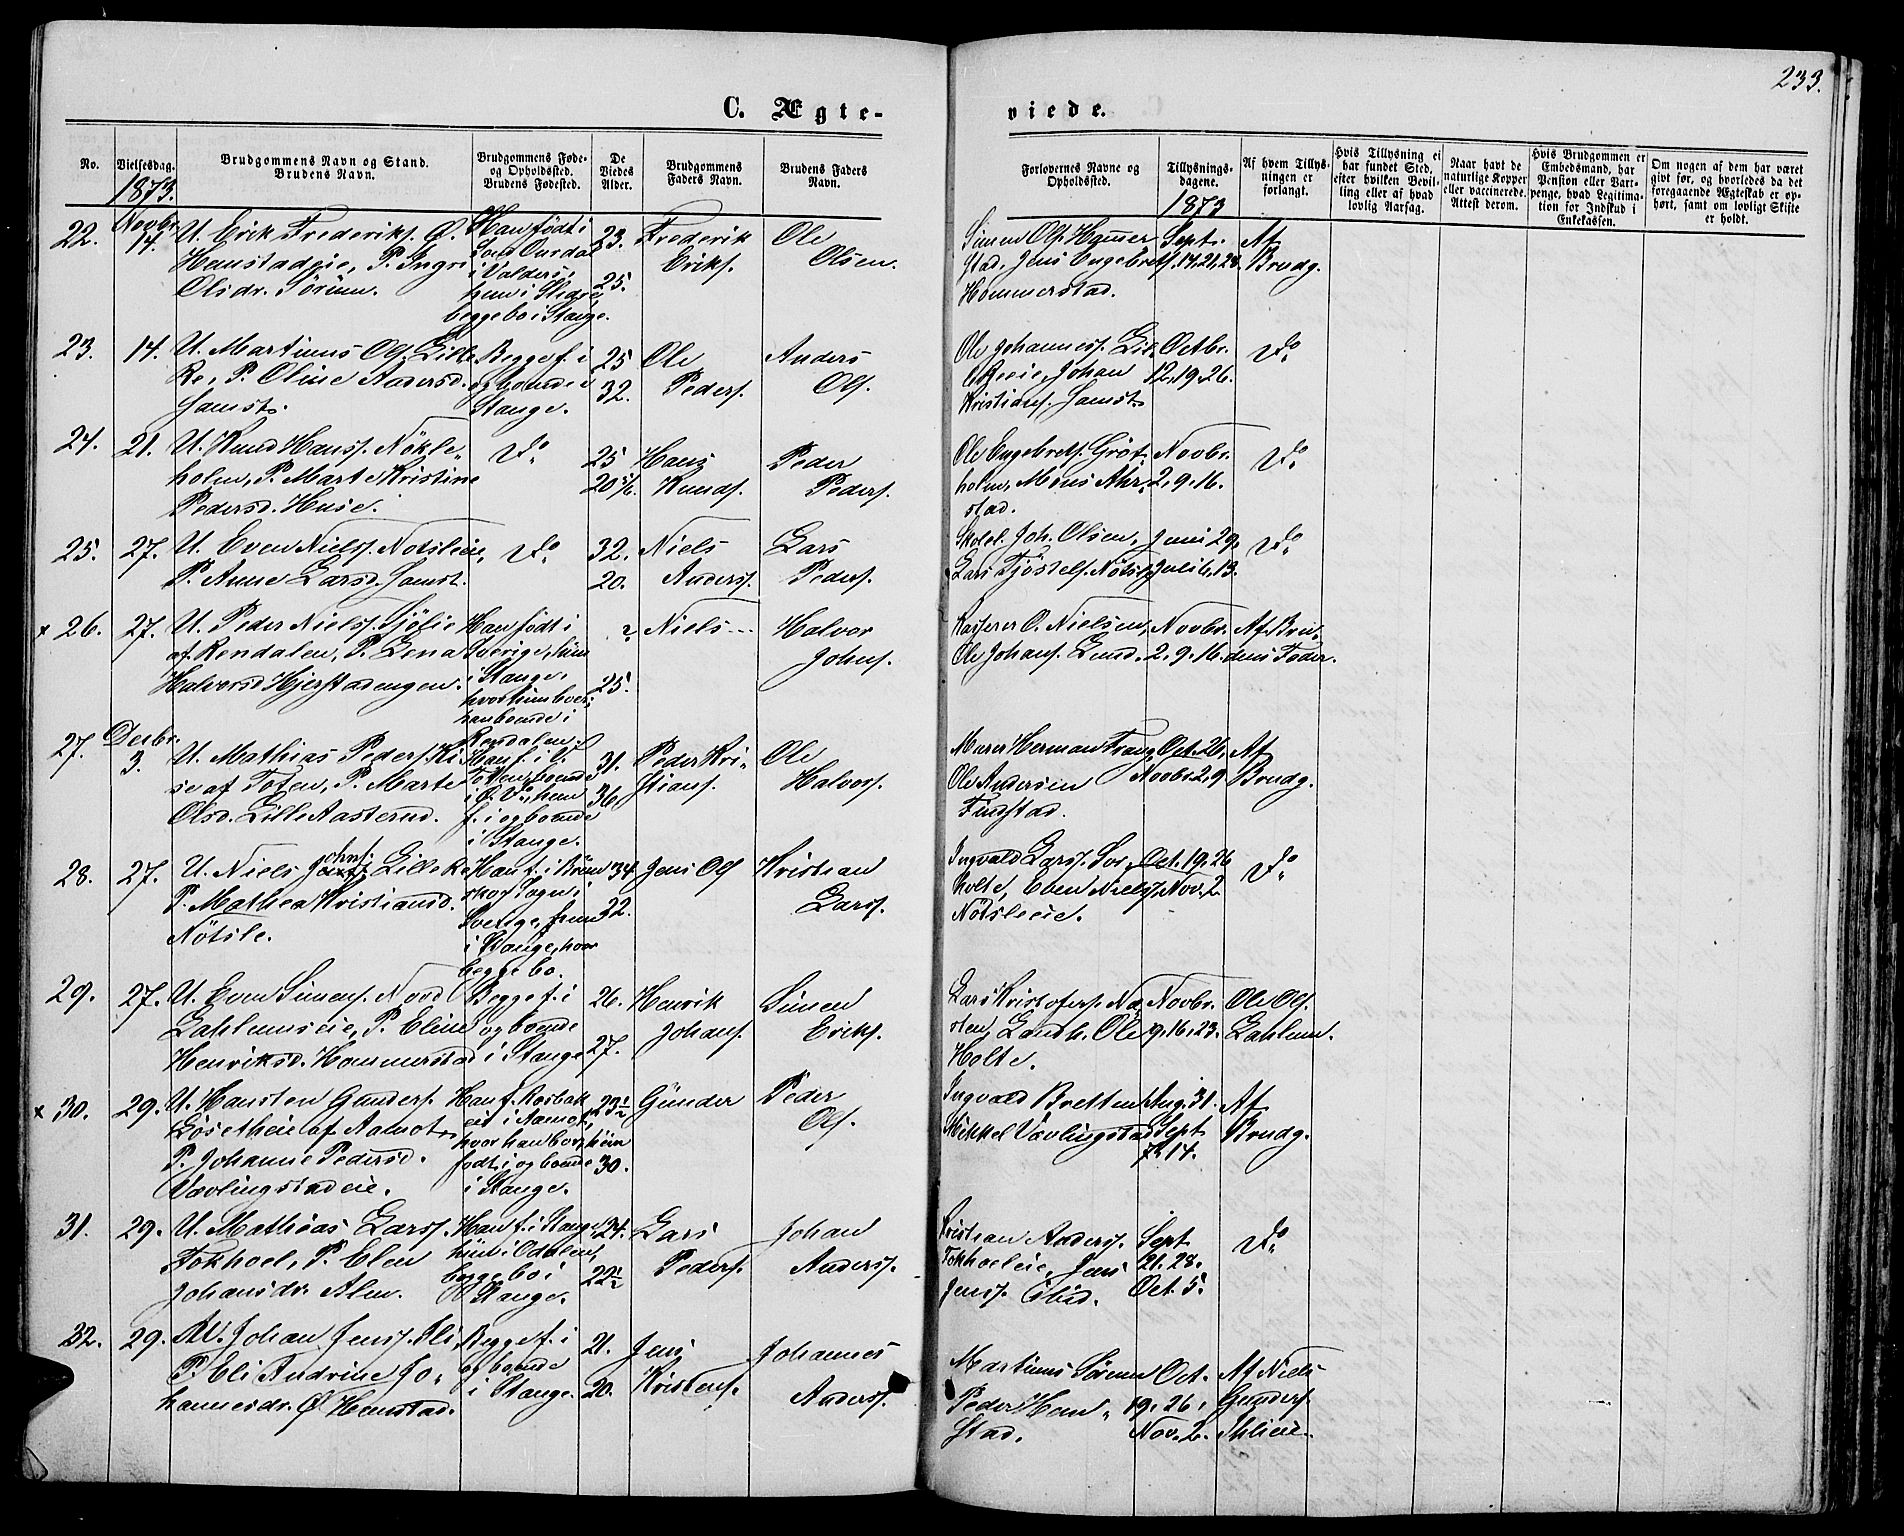 233.
C. Ægte-
viede.
No.
Vielsesdag.
Brudgommens Navn og Stand.
Brudens Navn.
Brudgommens Føde-
og Opholdssted.
Brudens Fødested.
De
Viedes
Alder.
Brudgommens
Faders Navn.
Brudens Faders
Navn.
Forlovernes Navne og
Opholdssted.
Tillysnings-
dagene.
Af hvem Tillys-
ningen er
forlangt.
Hvis Tillysning ei
har fundet Sted,
efter hvilken Bevil-
ling eller af hvad
lovlig Aarsag.
Naar havt de
naturlige Kopper
eller vaccinerede.
Attest derom.
Hvis Brudgommen er
Embedsmand, har
Pension eller Vart-
penge, hvad Legitima-
tion for Indskud i
Enkekassen.
Om nogen af dem har været
gift før, og hvorledes da det
foregaaende Ægteskab er op-
hørt, samt om lovligt Skifte
er holdt.
1873.
1873
22. Novbr. 14.
U. Erik Frederiks. Ø.
Hemstadeie, P. Ingri
Olsdr. Sörum.
Han født i
Sønd Aurdal
i Valders,
hun i Slidre,
begge bo i Stange.
23.
25.
Frederik
Eriks.
Ole
Olsen.
Simen Ols. Hommer
stad, Jens Engebrets.
Hommerstad.
Sept.
14, 21, 28.
Af
Brudg.
23. 14.
U. Martinus Ols. Lille
Re, P. Oline Andersd.
Samst.
Begge f. i
og boende i
Stange.
25
32.
Ole
Peders.
Anders
Ols.
Ole Johanness. Lil
Reeie, Johan
Kristians. Samst.
Octbr.
12, 19, 26.
Do
24. 21.
U. Knud Hanss. Nökle
holen, P. Marte Kristine
Pedersd. Huse.
Do
25
20
Hans
Knuds.
Peder
Peders.
Ole Engebrets. Gröt
holm, Mons Ahr
stad.
Novbr.
2, 9, 16.
Do
25. 27.
U. Even Niels. Nötsleeie,
P. Anne Larsd. Samst.
Do
32.
20.
Niels
Anders.
Lars
Peders.
Skolel. Joh. Olsen,
Lars Tjöstels. Nötsl.
Juni 29,
Juli 6, 13.
Do
× 26. 27.
U. Peder Niels. Sjölie
af Rendalen, P. Lena
Halvorsd Hjerstadengen.
Han født i
Sverige, hun
i Stange,
hvor hun boer;
han boende i
Rendalen.
?
25.
Niels ---
Halvor
Johns.
Kasserer O. Nielsen,
Ole Johans. Lund.
Novbr.
2, 9, 16.
Af Bru-
dens Fader.
27. Decbr. 3.
U. Mathias Peders. Ki
se af Toten, P. Marte
Olsd. Lille Aasterud.
Han f. i V.
Toten, boende
i Ø. T., hun
f. i og boende
i Stange.
31.
36.
Peder Kri-
stians.
Ole
Halvors.
Murer Herman Frang,
Ole Andersen
Finstad.
Oct. 26,
Novbr. 2, 9
Af
Brudg.
28. 27.
U. Niels Johns. Lille Re
P. Mathea Kristiansd.
Nötsle.
Han f. i Brun
skog Sogn i
Sverige, hun
i Stange, hvor
begge bo.
34.
32.
Jens Ols
Kristian
Lars.
Ingvald Lars. Sor
holte, Even Niels.
Nötsleeie.
Oct. 19, 26
Nov. 2
Do
29. 27.
U. Even Simens. Nord
Lahlumseie, P. Eline
Henriksd. Hommerstad
Begge f. i
og boende
i Stange
26.
27.
Henrik
Johans.
Simen
Eriks.
Lars Kristofers. Næ
sten, Landh. Ole
Holte.
Novbr.
9, 16, 23.
Ole Ols.
Lahlum.
× 30. 29.
U. Hansten Gunders.
Löseth eie af Aamot,
P. Johanne Pedersd.
Vævlingstadeie.
Han f. Rosbak
eie i Aamot,
hvor han bor, hun
født i og boende
i Stange.
23½
30.
Günder
Peder
Ols.
Ingvald Bretten
Mikkel Vævlingstad
Aug. 31.
Sept.
7 & 14.
Af
Brudg.
31. 29.
U. Mathias Larss.
Fokhoel, P. Elen
Johansdr. Alm.
Han f. i Stange,
hun i Odalen,
begge bo i
Stange.
24.
22½
Lars
Peders.
Johan
Anderss.
Kristian Anderss.
Fokhoeleie, Jens
Jenss.
Sept.
21. 28.
Oct. 5.
Do
32. 29.
Johan Jenss. Ili,
P. Eli Andrine Jo-
hannesdr. Ø Hemstad.
Begge f. i
og boende
i Stange.
21.
20.
Jens
Kristens.
Johannes
Anderss.
Martinus Sörum
Peder Hem-
stad.
Oct.
19, 26,
Nov. 2.
Af Niels
Gunders.
Ihlieie.